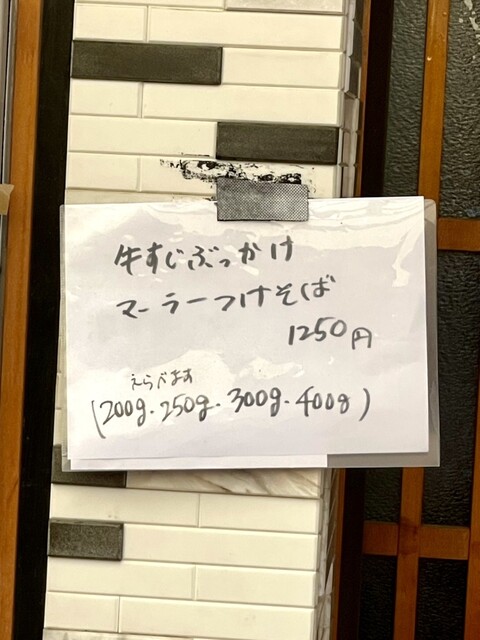 牛すじぶっかけ
マーラーつけそば
1250円
えらべます
(200g・250g・300g・400g)